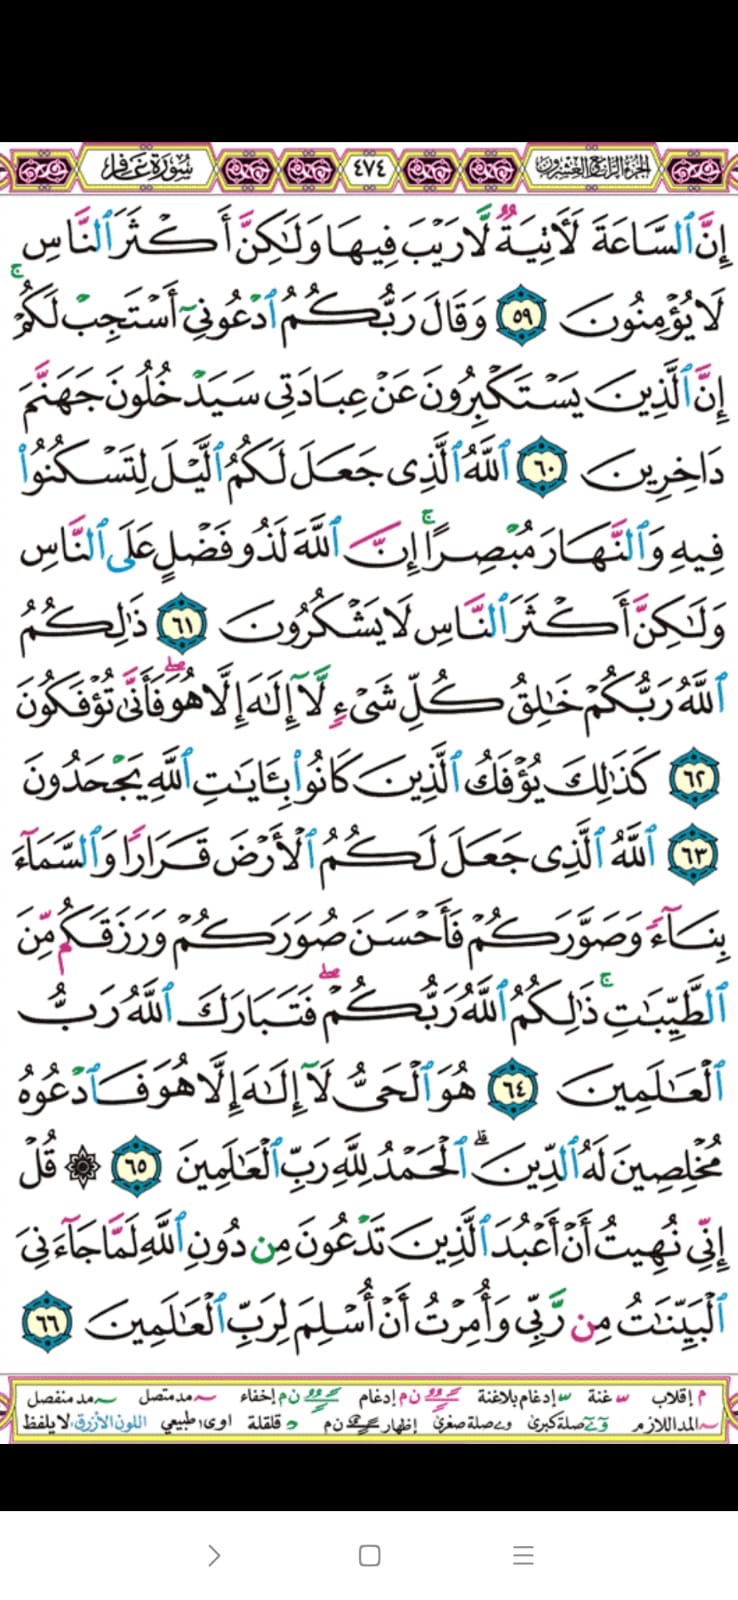 الجزء الرابع والعشرون ٤٧٤ سورة غافر
إِنَّ ٱلسَّاعَةَ لَأٓتِيَةٌ لَّا رَيۡبَ فِيهَا وَلَٰكِنَّ أَكۡثَرَ ٱلنَّاسِ
لَا يُؤۡمِنُونَ ٥٩ وَقَالَ رَبُّكُمُ ٱدۡعُونِيٓ أَسۡتَجِبۡ لَكُمۡۚ
إِنَّ ٱلَّذِينَ يَسۡتَكۡبِرُونَ عَنۡ عِبَادَتِي سَيَدۡخُلُونَ جَهَنَّمَ
دَاخِرِينَ ٦٠ ٱللَّهُ ٱلَّذِي جَعَلَ لَكُمُ ٱلَّيۡلَ لِتَسۡكُنُواْ
فِيهِ وَٱلنَّهَارَ مُبۡصِرًاۚ إِنَّ ٱللَّهَ لَذُو فَضۡلٍ عَلَى ٱلنَّاسِ
وَلَٰكِنَّ أَكۡثَرَ ٱلنَّاسِ لَا يَشۡكُرُونَ ٦١ ذَٰلِكُمُ
ٱللَّهُ رَبُّكُمۡ خَٰلِقُ كُلِّ شَيۡءٖ لَّآ إِلَٰهَ إِلَّا هُوَۖ فَأَنَّىٰ تُؤۡفَكُونَ
٦٢ كَذَٰلِكَ يُؤۡفَكُ ٱلَّذِينَ كَانُواْ بِـَٔايَٰتِ ٱللَّهِ يَجۡحَدُونَ
٦٣ ٱللَّهُ ٱلَّذِي جَعَلَ لَكُمُ ٱلۡأَرۡضَ قَرَارٗا وَٱلسَّمَآءَ
بِنَآءٗ وَصَوَّرَكُمۡ فَأَحۡسَنَ صُوَرَكُمۡ وَرَزَقَكُم مِّنَ
ٱلطَّيِّبَٰتِۚ ذَٰلِكُمُ ٱللَّهُ رَبُّكُمۡۖ فَتَبَارَكَ ٱللَّهُ رَبُّ
ٱلۡعَٰلَمِينَ ٦٤ هُوَ ٱلۡحَيُّ لَآ إِلَٰهَ إِلَّا هُوَ فَٱدۡعُوهُ
مُخۡلِصِينَ لَهُ ٱلدِّينَۗ ٱلۡحَمۡدُ لِلَّهِ رَبِّ ٱلۡعَٰلَمِينَ ٦٥ ۞ قُلۡ
إِنِّي نُهِيتُ أَنۡ أَعۡبُدَ ٱلَّذِينَ تَدۡعُونَ مِن دُونِ ٱللَّهِ لَمَّا جَآءَنِيَ
ٱلۡبَيِّنَٰتُ مِن رَّبِّي وَأُمِرۡتُ أَنۡ أُسۡلِمَ لِرَبِّ ٱلۡعَٰلَمِينَ ٦٦
م إقلاب غنة إدغام بلاغنة ن م إدغام ن م إخفاء مد متصل مد منفصل
المد اللازم صلة كبرى صلة صغرى إظهار ن م قلقلة اوى طبيعي اللون الأزرق: لا يلفظ